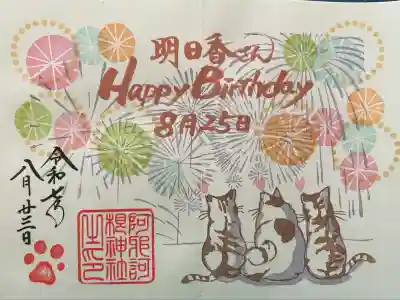 明日香さん
Happy Birthday
8月25日
令和
八月廿三日
阿邪訶
根神社
之印